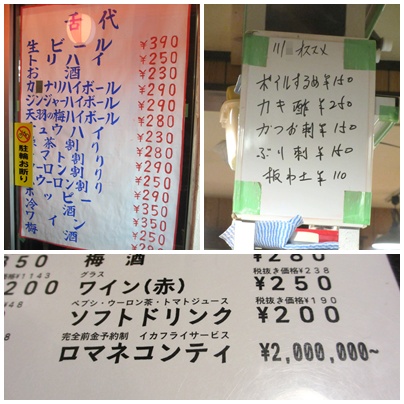 舌代
生ビール ¥390
トリハイ ¥250
お酒 ¥230
ナリハイボール ¥290
ジンジャーハイボール ¥290
天羽の梅ハイボール ¥280
ュウハイ ¥230
茶割り ¥280
マト割り ¥290
ーロン割り
ウーロン割り ¥250
ッピー ¥290
¥350
イン ¥250
梅
駐輪お断り
川 オススメ
ボイルするめ ¥150
カキ酢 ¥250
かつお刺 ¥150
ぶり刺 ¥150
板わさ ¥110
350 梅酒 ¥280
¥1143 グラス 税抜き価格¥238
200 ワイン(赤) ¥250
¥48 ペプシ・ウーロン茶・トマトジュース 税抜き価格¥190
ソフトドリンク ¥200
完全前金予約制 イカフライサービス
ロマネコンティ ¥2,000,000~